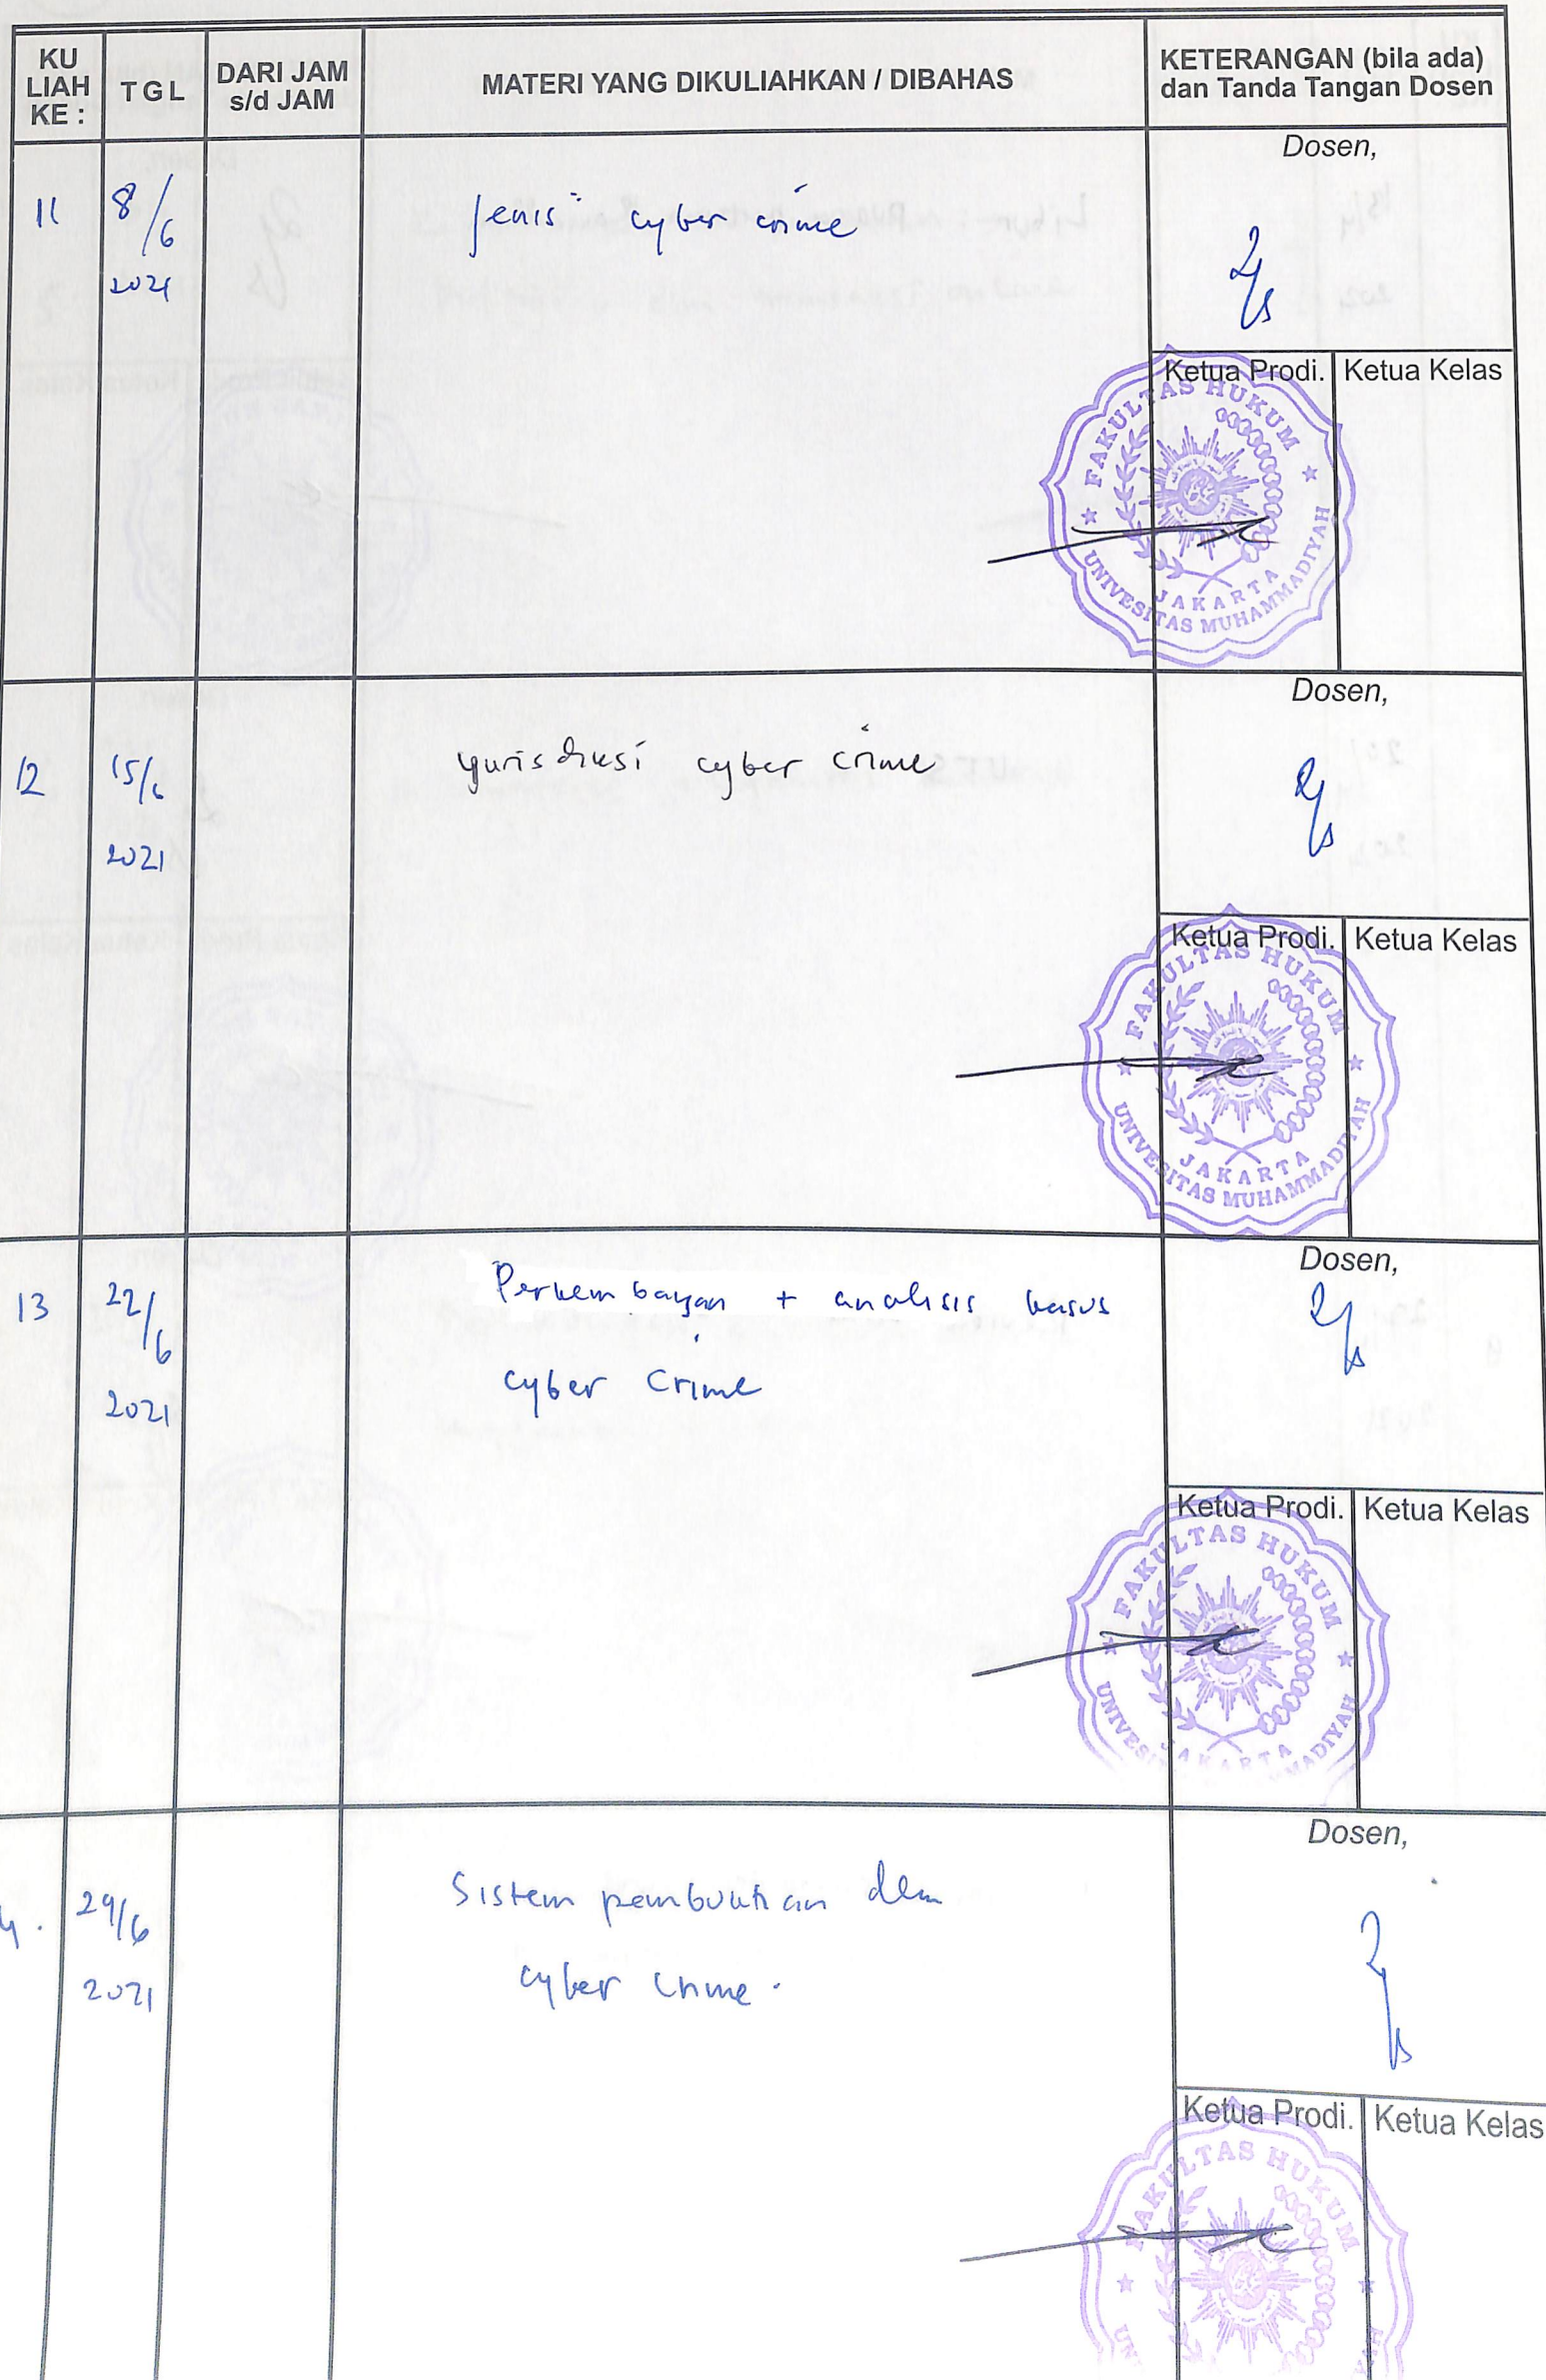 KU LIAH KE :
T G L
DARI JAM s/d JAM
MATERI YANG DIKULIAHKAN / DIBAHAS
KETERANGAN (bila ada) dan Tanda Tangan Dosen
11
8/6
2021
Jenis² cyber crime
Dosen,
Ketua Prodi.
Ketua Kelas
FAKULTAS HUKUM
UNIVESITAS MUHAMMADIYAH
JAKARTA
12
15/6
2021
yurisdiksi cyber crime
Dosen,
Ketua Prodi.
Ketua Kelas
FAKULTAS HUKUM
UNIVESITAS MUHAMMADIYAH
JAKARTA
13
22/6
2021
Perkembangan + analisis kasus
cyber crime
Dosen,
Ketua Prodi.
Ketua Kelas
FAKULTAS HUKUM
JAKARTA
4.
29/6
2021
Sistem pembuktian dlm
cyber crime.
Dosen,
Ketua Prodi.
Ketua Kelas
FAKULTAS HUKUM